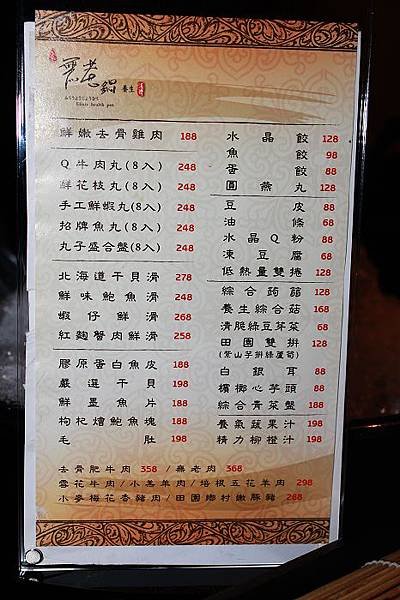 無老鍋 養生
Elixir health pot
鮮嫩去骨雞肉 188
Q牛肉丸(8入) 248
鮮花枝丸(8入) 248
手工鮮蝦丸(8入) 248
招牌魚丸(8入) 248
丸子盛合盤(8入) 248
北海道干貝滑 278
鮮味鮑魚滑 248
蝦仔鮮滑 268
紅麴蟹肉鮮滑 258
膠原蛋白魚皮 188
嚴選干貝 198
鮮墨魚片 188
枸杞燴鮑魚塊 198
毛肚 198
水晶餃 128
魚餃 98
蛋餃 88
圓燕丸 128
豆皮 88
油條 68
水晶Q粉 88
凍豆腐 68
低熱量雙捲 128
綜合蒟蒻 128
養生綜合菇 168
清脆綠豆芽菜 68
田園雙拼 128
(紫山芋拼綠蘆筍)
白銀耳 88
檳榔心芋頭 88
綜合青菜盤 188
養氣蔬果汁 198
精力柳橙汁 198
去骨肥牛肉 358 / 無老肉 368
雪花牛肉 / 小羔羊肉 / 培根五花羊肉 298
小麥梅花香豬肉 / 田園鄉村嫩豚豬 288